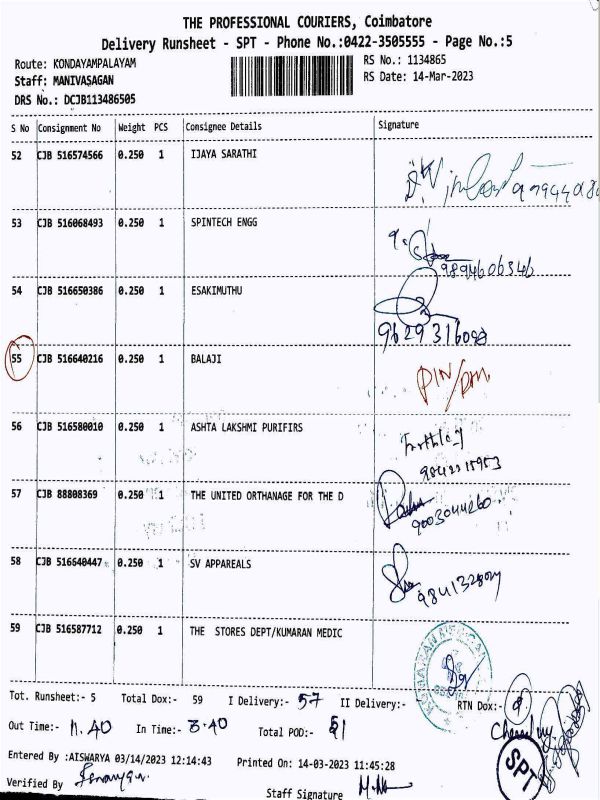 THE PROFESSIONAL COURIERS, Coimbatore
Delivery Runsheet - SPT - Phone No.:0422-3505555 - Page No.:5
Route: KONDAYAMPALAYAM
RS No.: 1134865
Staff: MANIVASAGAN
RS Date: 14-Mar-2023
DRS No.: DCJB113486505
S No Consignment No Weight PCS Consignee Details Signature
52 CJB 516574566 0.250 1 IJAYA SARATHI
53 CJB 516068493 0.250 1 SPINTECH ENGG
9894606346
54 CJB 516650386 0.250 1 ESAKIMUTHU
9629316098
55 CJB 516640216 0.250 1 BALAJI
PIN/
56 CJB 516580010 0.250 1 ASHTA LAKSHMI PURIFIRS
57 CJB 88808369 0.250 1 THE UNITED ORTHANAGE FOR THE D
9003044260
58 CJB 516640447 0.250 1 SV APPAREALS
59 CJB 516587712 0.250 1 THE STORES DEPT/KUMARAN MEDIC
Tot. Runsheet:- 5 Total Dox:- 59 I Delivery:- 57 II Delivery:- RTN Dox:-
Out Time:- 11.40 In Time:- 3.40 Total POD:-
Entered By :AISWARYA 03/14/2023 12:14:43 Printed On: 14-03-2023 11:45:28
SPT
Verified By
Staff Signature